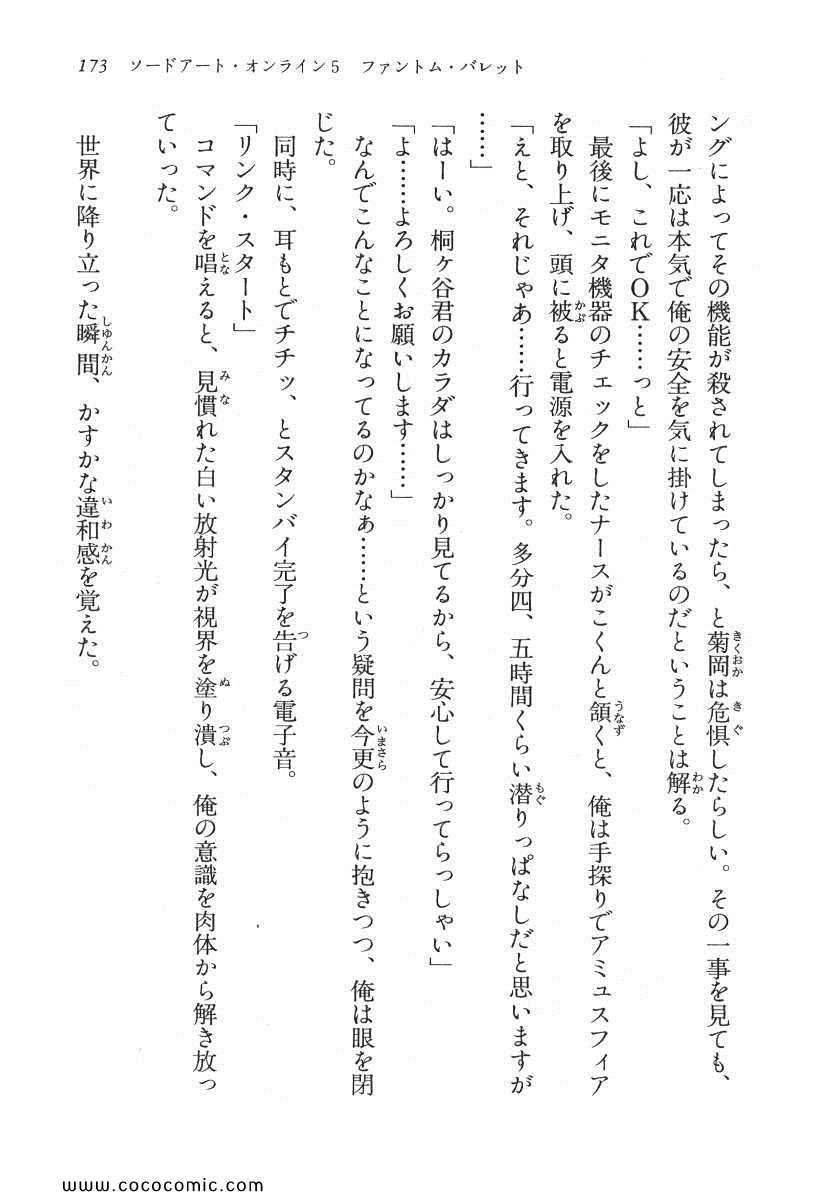 173　ソードアート・オンライン5　ファントム・バレット
ングによってその機能が殺されてしまったら、と菊岡は危惧したらしい。その一事を見ても、
彼が一応は本気で俺の安全を気に掛けているのだということは解る。
「よし、これでOK……っと」
　最後にモニタ機器のチェックをしたナースがこくんと頷くと、俺は手探りでアミュスフィア
を取り上げ、頭に被ると電源を入れた。
「えと、それじゃあ……行ってきます。多分四、五時間くらい潜りっぱなしだと思いますが
……」
「はーい。桐ヶ谷君のカラダはしっかり見てるから、安心して行ってらっしゃい」
「よ……よろしくお願いします……」
　なんでこんなことになってるのかなぁ……という疑問を今更のように抱きつつ、俺は眼を閉
じた。
　同時に、耳もとでチチッ、とスタンバイ完了を告げる電子音。
「リンク・スタート」
　コマンドを唱えると、見慣れた白い放射光が視界を塗り潰し、俺の意識を肉体から解き放っ
ていった。
　世界に降り立った瞬間、かすかな違和感を覚えた。
www.cococomic.com